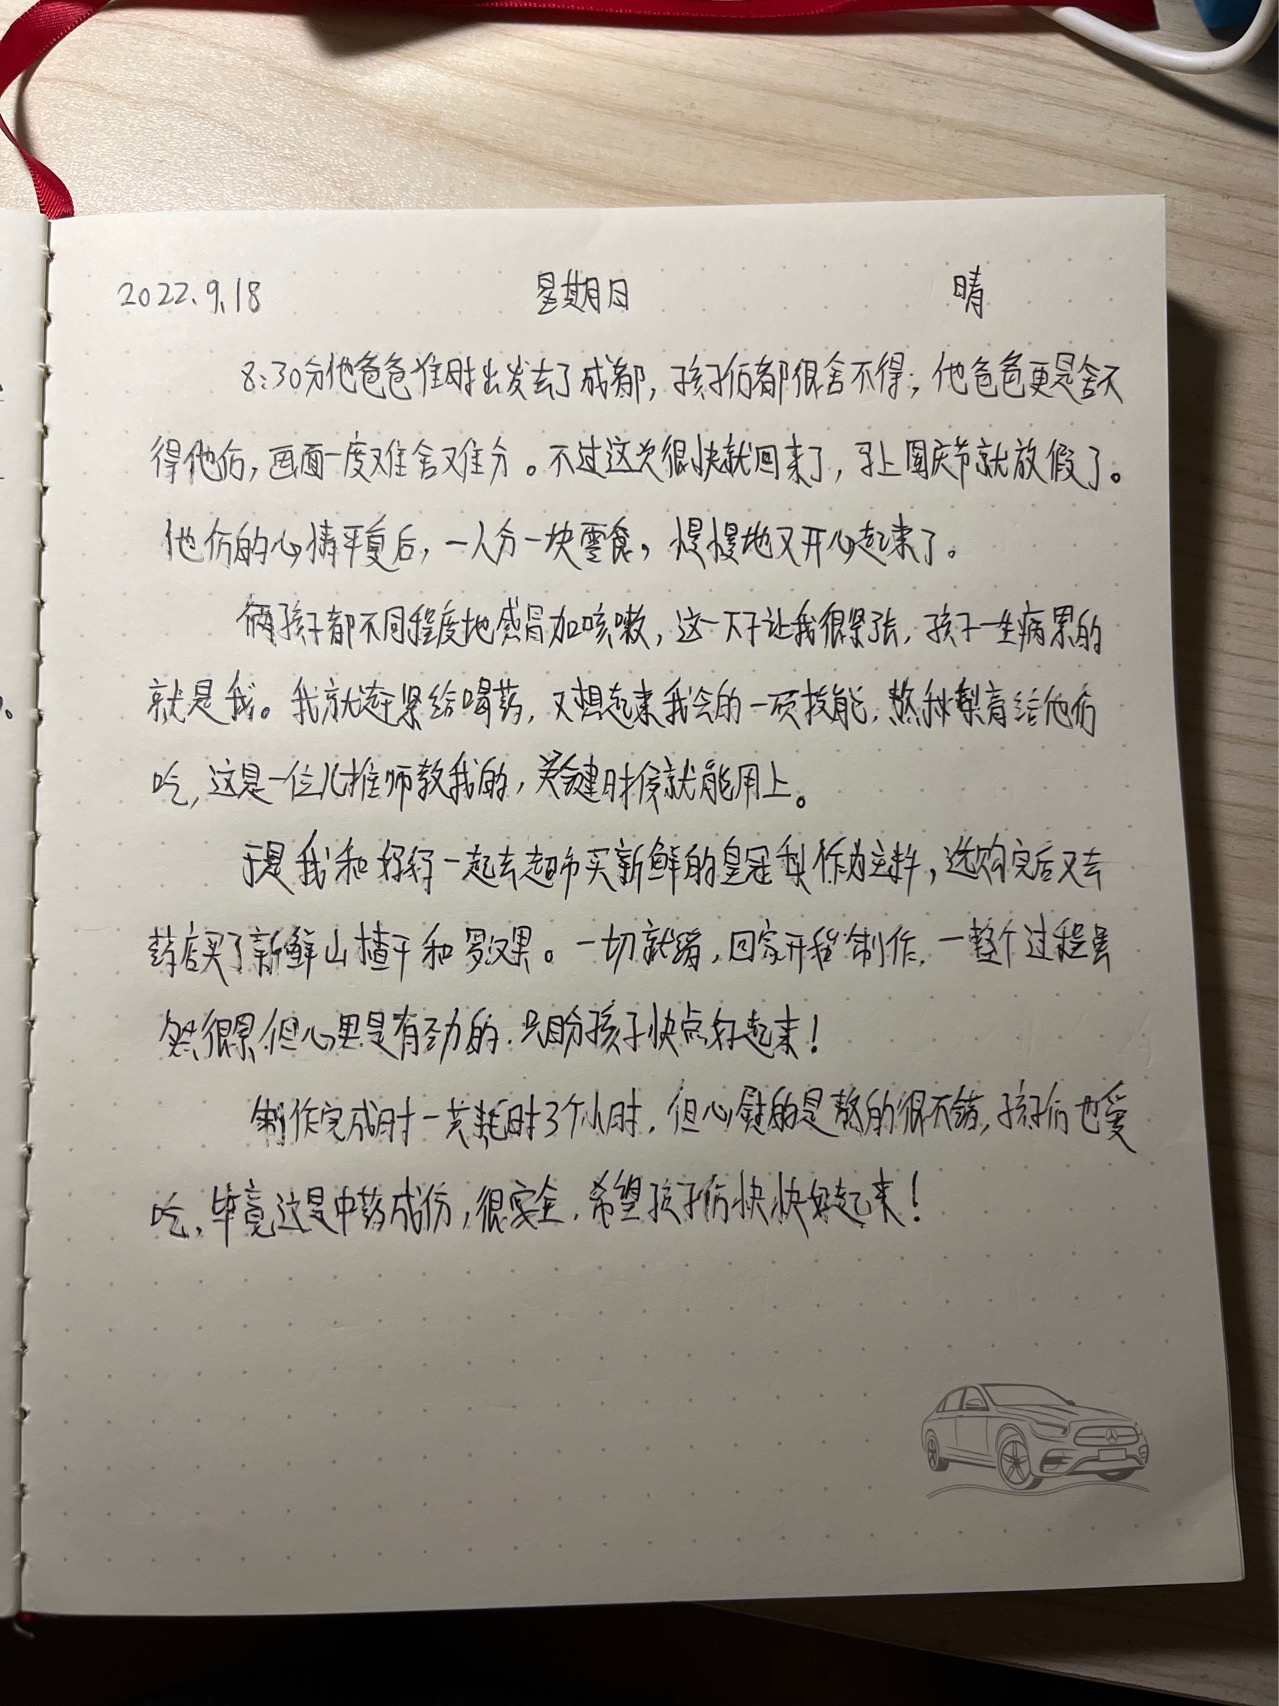 2022.9.18 星期日 晴
8:30分他爸爸准时出发去了成都，孩子们都很舍不得；他爸爸更是舍不
得他们，画面一度难舍又难分。不过这次很快就回来了，马上国庆节就放假了。
他们的心情平复后，一人分一块零食，慢慢地又开心起来了。
俩孩子都不同程度地感冒加咳嗽，这一下子让我很紧张，孩子一生病累的
就是我。我就赶紧给喝药，又想起来我会的一项技能，熬秋梨膏给他们
吃，这是一位儿推师教我的，关键时候就能用上。
于是我和好好一起去超市买新鲜的皇冠梨作为主料，选购完后又去
药店买了新鲜山楂干和罗汉果。一切就绪，回家开始制作，一整个过程虽
然很累但心里是有劲的，只盼孩子快点好起来！
制作完成时一共耗时3个小时，但心慰的是熬的很不错，孩子们也爱
吃，毕竟这是中药成份，很安全，希望孩子们快快好起来！